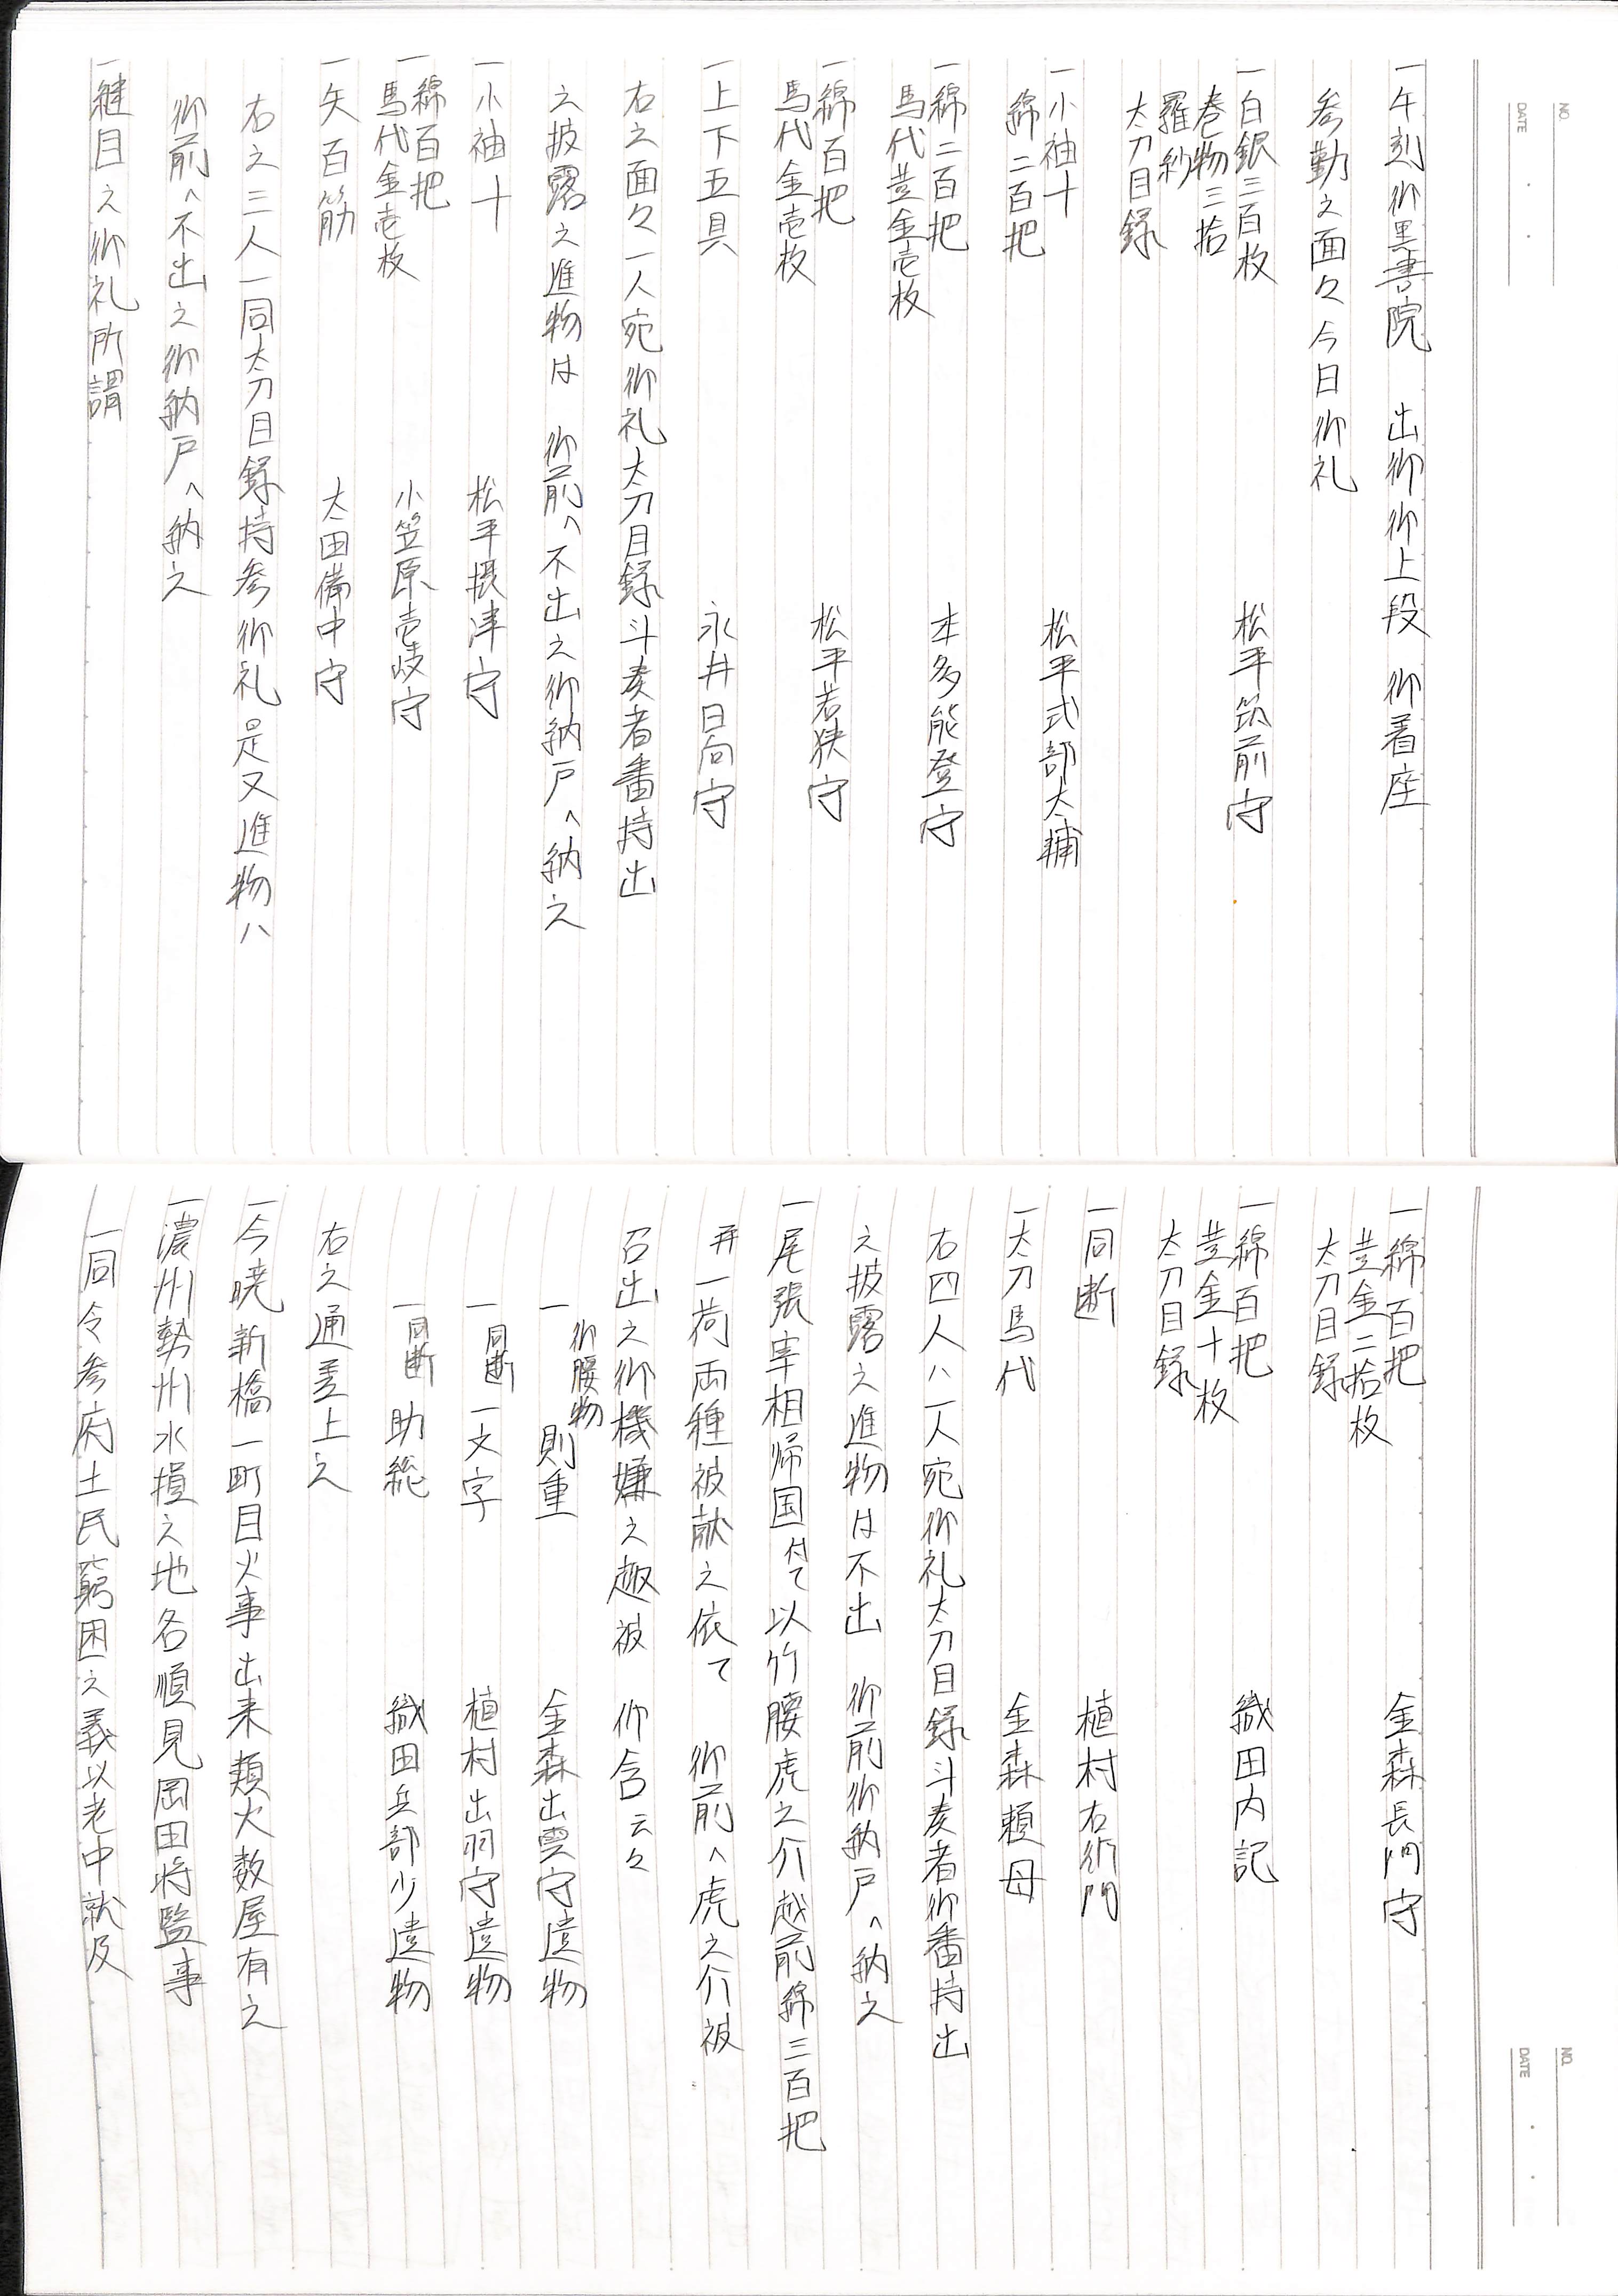 NO.
DATE
一午刻御黒書院　出御御上段　御着座
参勤之面々今日御礼
一白銀三百枚　松平筑前守
巻物三拾
羅紗
太刀目録
一小袖十　松平式部太輔
綿二百把
一綿二百把　本多能登守
馬代荳金壱枚
一綿百把　松平若狭守
馬代金壱枚
一上下五具　永井日向守
右之面々一人宛御礼太刀目録斗奏者番持出
之披露之進物は　御前へ不出之御納戸へ納之
一小袖十　松平摂津守
一綿百把　小笠原壱岐守
馬代金壱枚
一矢百筋　太田備中守
右之三人一同太刀目録持参御礼是又進物ハ
御前へ不出之御納戸へ納之
一継目之御礼所謂
NO.
DATE
一綿百把　金森長門守
荳金二拾枚
太刀目録
一綿百把　織田内記
荳金十枚
太刀目録
一同断　植村右衛門
一太刀馬代　金森頼母
右四人ハ一人宛御礼太刀目録斗奏者御番持出
之披露之進物は不出　御前御納戸へ納之
一尾張宰相帰国付て以竹腰虎之介越前綿三百把
并一荷両種被献之依て　御前へ虎之介被
召出之御機嫌之趣被　仰含云々
一御腰物　則重　金森出雲守遺物
一同断　一文字　植村出羽守遺物
一同断　助総　織田兵部少遺物
右之通差上之
一今暁新橋一町目火事出来類火数屋有之
一濃州勢州水損之地各順見岡田将監事
一同令参府土民窮困之義以老中就及